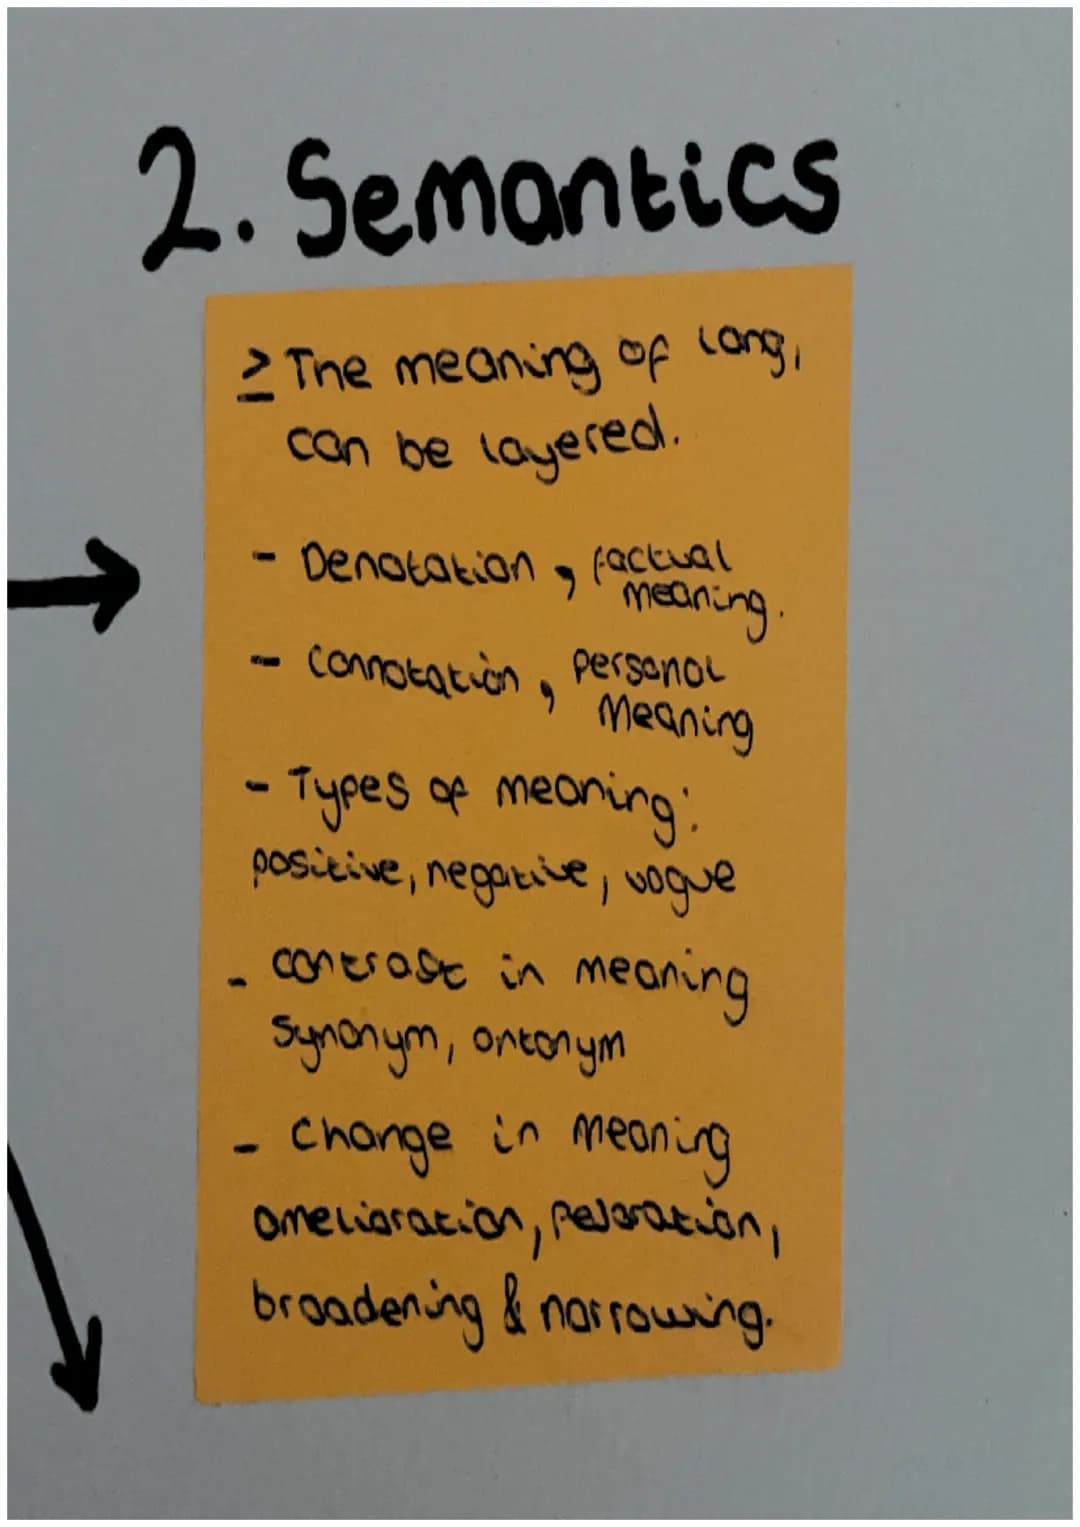 2. Semantics
> The meaning of lang,
can be layered.
- Denotation, factual
meaning.
- Connotation, personal
Meaning
- Types of meaning:
positive, negative, vague
- contrast in meaning
synonym, antonym
- Change in meaning
amelioration, pejoration,
broadening & narrowing.